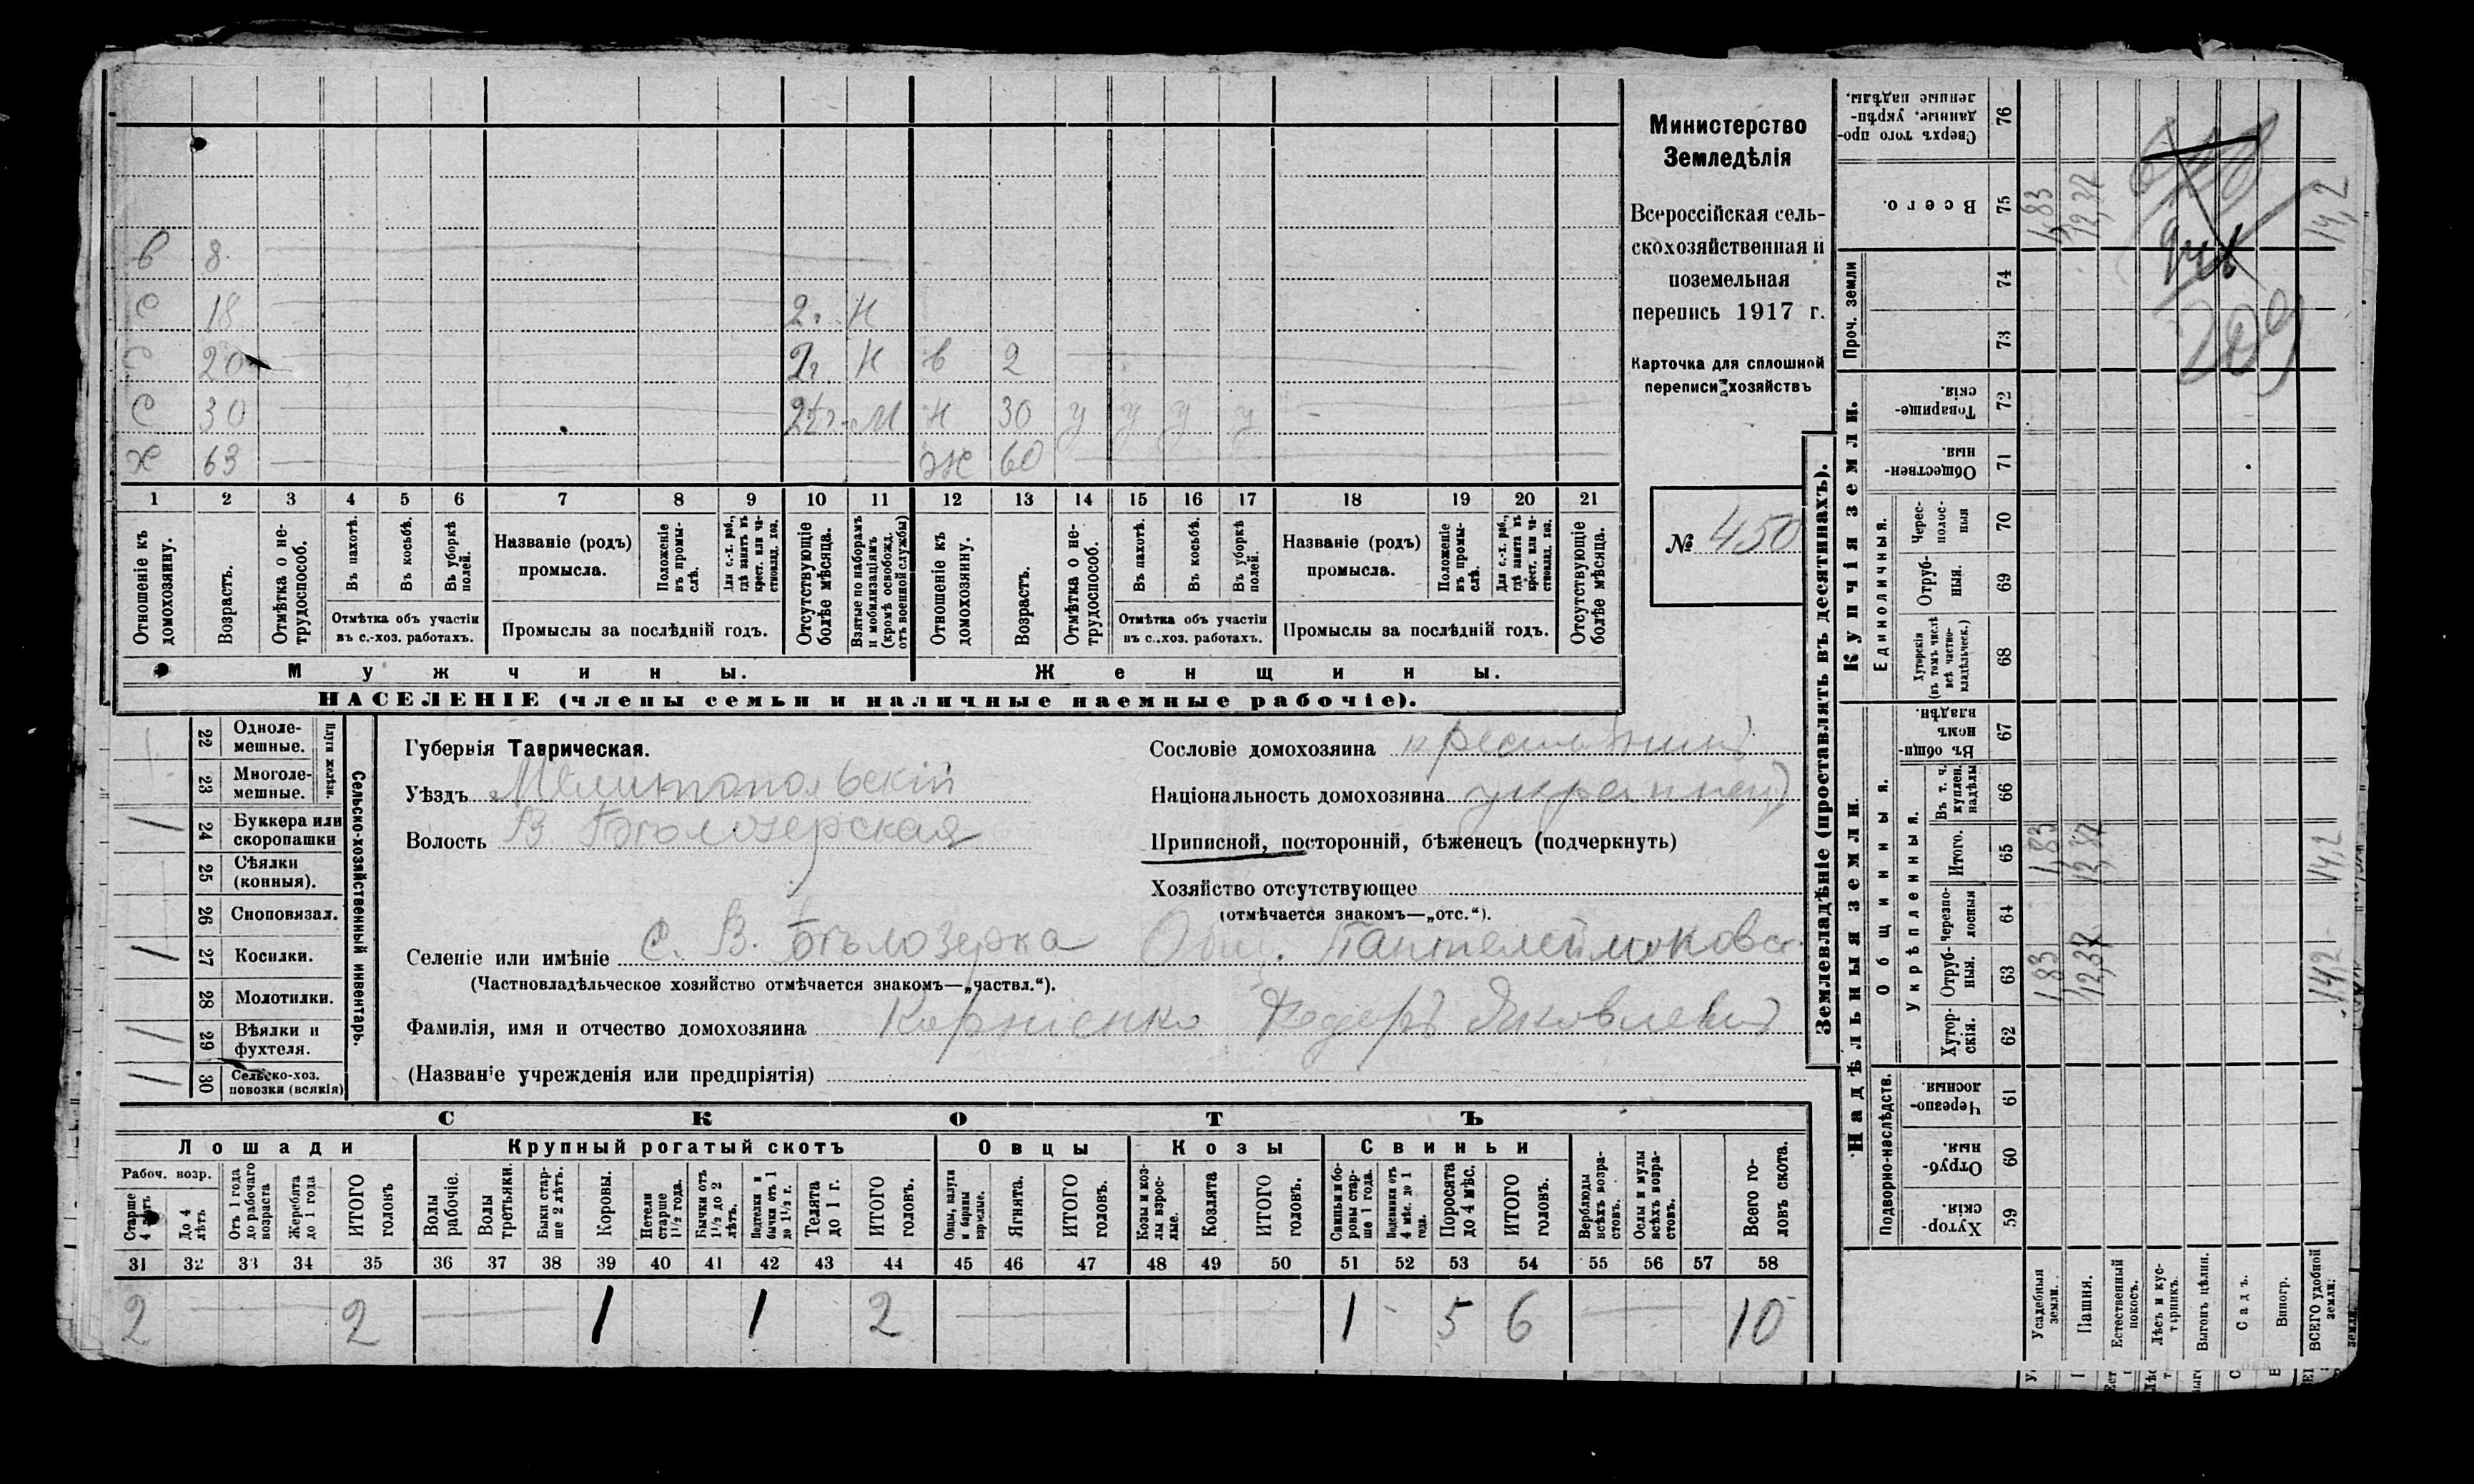 в 8
с 18 2г. н
с 20 2г. н в 2
с 30 2½г. м н 30 у у у у -
х 63 ж 60
1 2 3 4 5 6 7 8 9 10 11 12 13 14 15 16 17 18 19 20 21
Отношеніе къ домохозяину.
Возрастъ.
Отмѣтка о не-трудоспособ.
Въ пахотѣ.
Въ косьбѣ.
Въ уборкѣ полей.
Отмѣтка объ участіи
въ с.-хоз. работахъ.
Названіе (родъ)
промысла.
Положеніе въ промы-слѣ.
Для с.-х. раб., гдѣ занятъ въ крест. или ча-стновлад. хоз.
Промыслы за послѣдній годъ.
Отсутствующіе болѣе мѣсяца.
Взятые по наборамъ и мобилизаціямъ (кромѣ освобожд. отъ военной службы)
Отношеніе къ домохозяину.
Возрастъ.
Отмѣтка о не-трудоспособ.
Въ пахотѣ.
Въ косьбѣ.
Въ уборкѣ полей.
Отмѣтка объ участіи
въ с..хоз. работахъ.
Названіе (родъ)
промысла.
Положеніе въ промы-слѣ.
Для с.-х. раб., гдѣ занята въ крест. или ча-стновлад. хоз.
Промыслы за послѣдній годъ.
Отсутствующіе болѣе мѣсяца.
Мужчины.
Женщины.
НАСЕЛЕНІЕ (члены семьи и наличные наемные рабочіе).
Министерство
Земледѣлія
Всероссійская сель-
скохозяйственная и
поземельная
перепись 1917 г.
Карточка для сплошной
переписи хозяйствъ
№ 450
22 Одноле-мешные.
23 Многоле-мешные.
Плуги желѣзн.
24 Буккера или скоропашки /
25 Сѣялки (конныя).
26 Сноповязал.
27 Косилки. /
28 Молотилки.
29 Вѣялки и фухтеля. /
30 Сельско-хоз. повозки (всякія) /
Сельско-хозяйственный инвентарь.
Губернія Таврическая.
Уѣздъ Мелитопольскій
Волость В. Бѣлозерская
Сословіе домохозяина крестьянинъ
Національность домохозяина украинецъ
Приписной, посторонній, бѣженецъ (подчеркнуть)
Хозяйство отсутствующее
(отмѣчается знакомъ—„отс.“).
Селеніе или имѣніе С. В. Бѣлозерка Общ. Пантелеймоновск.
(Частновладѣльческое хозяйство отмѣчается знакомъ—„частвл.“).
Фамилія, имя и отчество домохозяина Корніенко Федоръ Яковлевичъ
(Названіе учрежденія или предпріятія)
СКОТЪ
Лошади Крупный рогатый скотъ Овцы Козы Свиньи
Рабоч. возр.
Старше 4 лѣтъ
До 4 лѣтъ
Отъ 1 года до рабочаго возраста
Жеребята до 1 года
ИТОГО головъ
Волы рабочіе.
Волы третьяки.
Быки стар-ше 2 лѣтъ.
Коровы.
Нетели старше 1½ года.
Бычки отъ 1½ до 2 лѣтъ.
Подтелки и бычки отъ 1 до 1½ г.
Телята до 1 г.
ИТОГО головъ.
Овцы, валухи и бараны взрослые.
Ягнята.
ИТОГО головъ.
Козы и коз-лы взрос-лые.
Козлята
ИТОГО головъ.
Свиньи и бо-ровы стар-ше 1 года.
Подсвинки отъ 4 мѣс. до 1 года.
Поросята до 4 мѣс.
ИТОГО головъ.
Верблюды всѣхъ возра-стовъ.
Ослы и мулы всѣхъ возра-стовъ.
Всего го-ловъ скота.
31 32 33 34 35 36 37 38 39 40 41 42 43 44 45 46 47 48 49 50 51 52 53 54 55 56 57 58
2 2 1 1 2 1 - 5 6 10
Землевладѣніе (проставлять въ десятинахъ).
Надѣльныя земли.
Купчія земли.
Проч. земли
Подворно-наслѣдств.
Общинныя.
Укрѣпленныя.
Единоличныя.
Хутор-скія. 59
Отруб-ныя. 60
Черезпо-лосныя. 61
Хутор-скія. 62
Отруб-ныя. 63
Черезпо-лосныя 64
Итого. 65
Въ т. ч. куплен. надѣлы 66
Въ общи-номъ владѣн. 67
Хуторскія (въ томъ числѣ всѣ частно-владѣльческ.) 68
Отруб-ныя. 69
Черес-полос-ныя 70
Обществен-ныя 71
Товарище-скія. 72
73
74
Всего. 75
Сверхъ того про-данные, укрѣп-ленные надѣлы. 76
Усадебныя земли. 1,83 1,83 1,83
Пашня. 12,37 12,37 12,37
Естественный покосъ.
Лѣсъ и кус-тарникъ.
Выгонъ цѣлин.
Садъ.
Виногр.
ВСЕГО удобной земли: 14,2 14,2 14,2